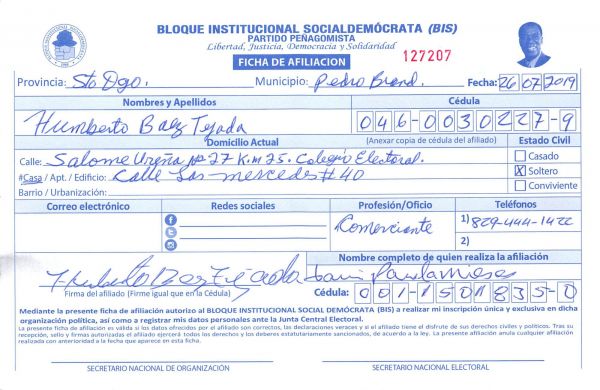 BLOQUE INSTITUCIONAL SOCIALDEMÓCRATA (BIS)
PARTIDO PEÑAGOMISTA
Libertad, Justicia, Democracia y Solidaridad
FICHA DE AFILIACION
127207
Provincia: Sto Dgo. Municipio: Pedro Brand. Fecha: 26/07/2019
Nombres y Apellidos Cédula
Humberto Baez Tejada 046-0030227-9
Domicilio Actual (Anexar copia de cédula del afiliado) Estado Civil
Calle: Salome Ureña Nº 27 K.m 25. Colegio Electoral. Casado
#Casa / Apt. / Edificio: Calle Las mercedes # 40 X Soltero
Barrio / Urbanización: Conviviente
Correo electrónico Redes sociales Profesión/Oficio Teléfonos
Comerciante 1) 829-444-1422
2)
Nombre completo de quien realiza la afiliación
Humberto Baez Tejada
Firma del afiliado (Firme igual que en la Cédula) Cédula: 001-1501835-0
Mediante la presente ficha de afiliación autorizo al BLOQUE INSTITUCIONAL SOCIAL DEMÓCRATA (BIS) a realizar mi inscripción única y exclusiva en dicha
organización política, así como a registrar mis datos personales ante la Junta Central Electoral.
La presente ficha de afiliación es válida si los datos ofrecidos por el afiliado son correctos, las declaraciones veraces y si el afiliado tiene el disfrute de sus derechos civiles y políticos. Tras su
recepción, sello y firmas autorizadas el afiliado ejercerá todos los derechos y los deberes estatutariamente sancionados, de acuerdo a la ley. La presente afiliación anula cualquier afiliación
realizada con anterioridad a la fecha que aparece en esta ficha.
SECRETARIO NACIONAL DE ORGANIZACIÓN SECRETARIO NACIONAL ELECTORAL